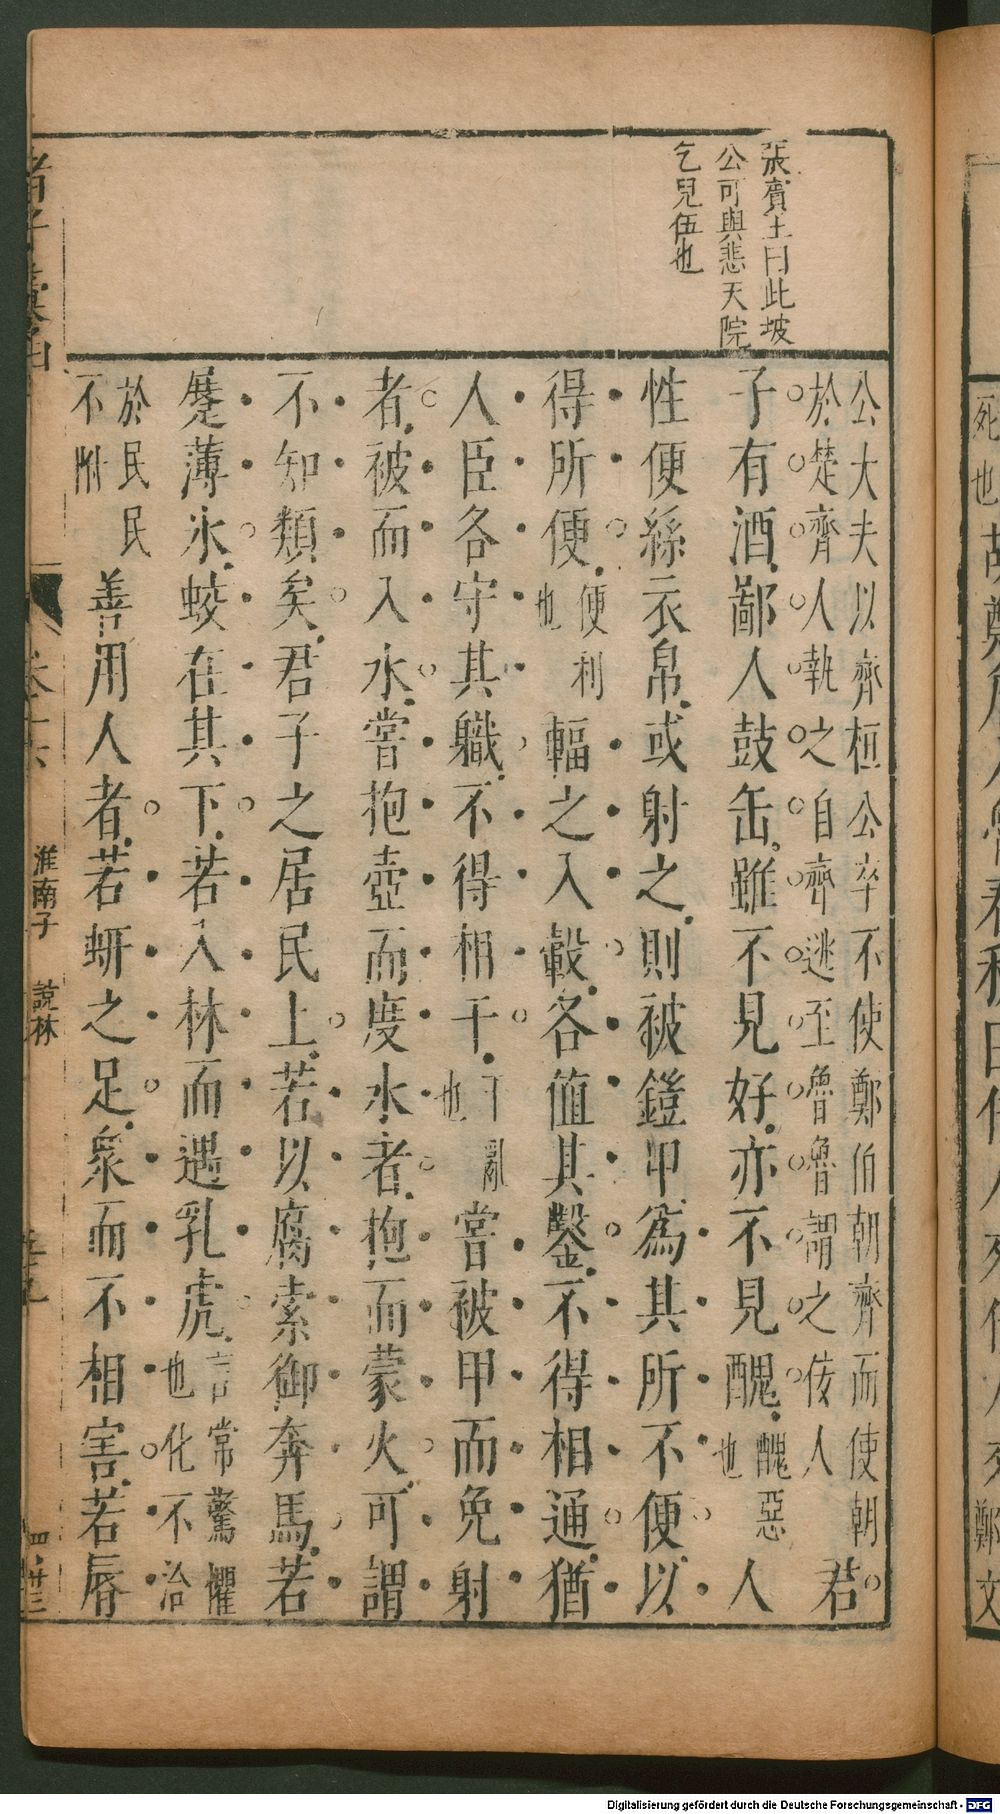 張賓王曰此坡
公可與悲天院
乞兒伍也
公大夫以齊桓公卒不使鄭伯朝齊而使朝
於楚齊人執之自齊逃至魯魯謂之佞人 君
子有酒鄙人鼓缶雖不見好亦不見醜醜惡也人
性便絲衣帛或射之則被鎧甲爲其所不便以
得所便便利也輻之入轂各値其鑿不得相通猶
人臣各守其職不得相干干亂也嘗被甲而免射
者被而入水嘗抱壺而度水者抱而蒙火可謂
不知類矣君子之居民上若以腐索御奔馬若
蹍薄氷蛟在其下若入林而遇乳虎言常驚懼也化不治
於民民不附善用人者若蚈之足衆而不相害若脣
淮南子 說林
死也
鄭文
Digitalisierung gefördert durch die Deutsche Forschungsgemeinschaft - DFG